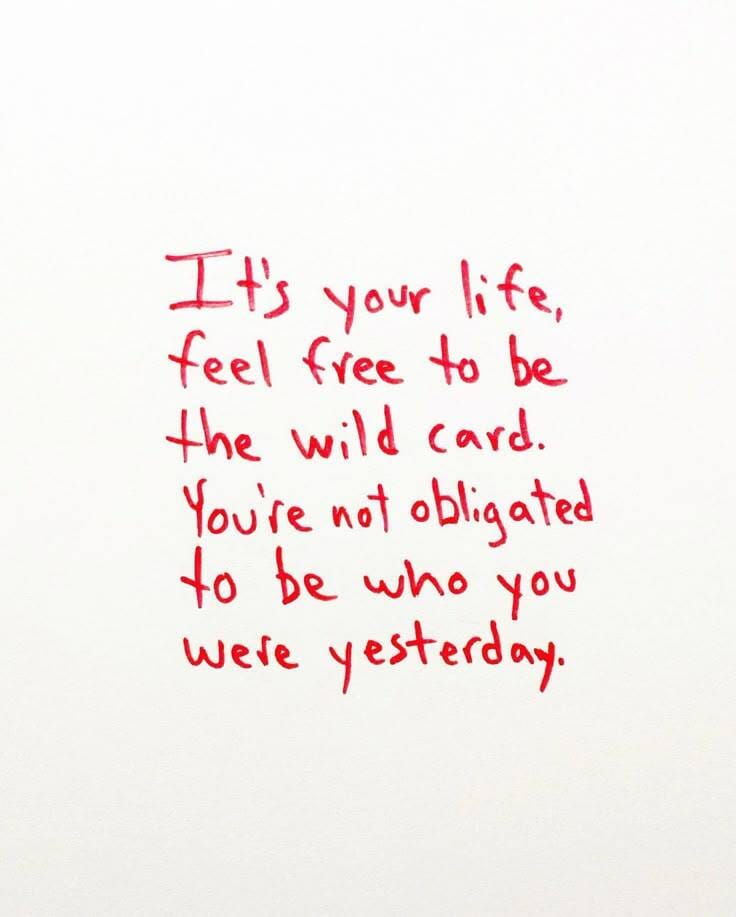 It's your life,
feel free to be
the wild card.
You're not obligated
to be who you
were yesterday.